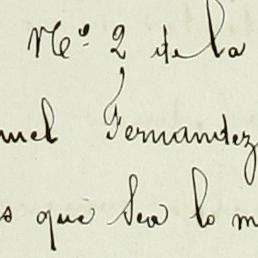 Nº 2 de la
nuel Fernandez
s que sea lo m